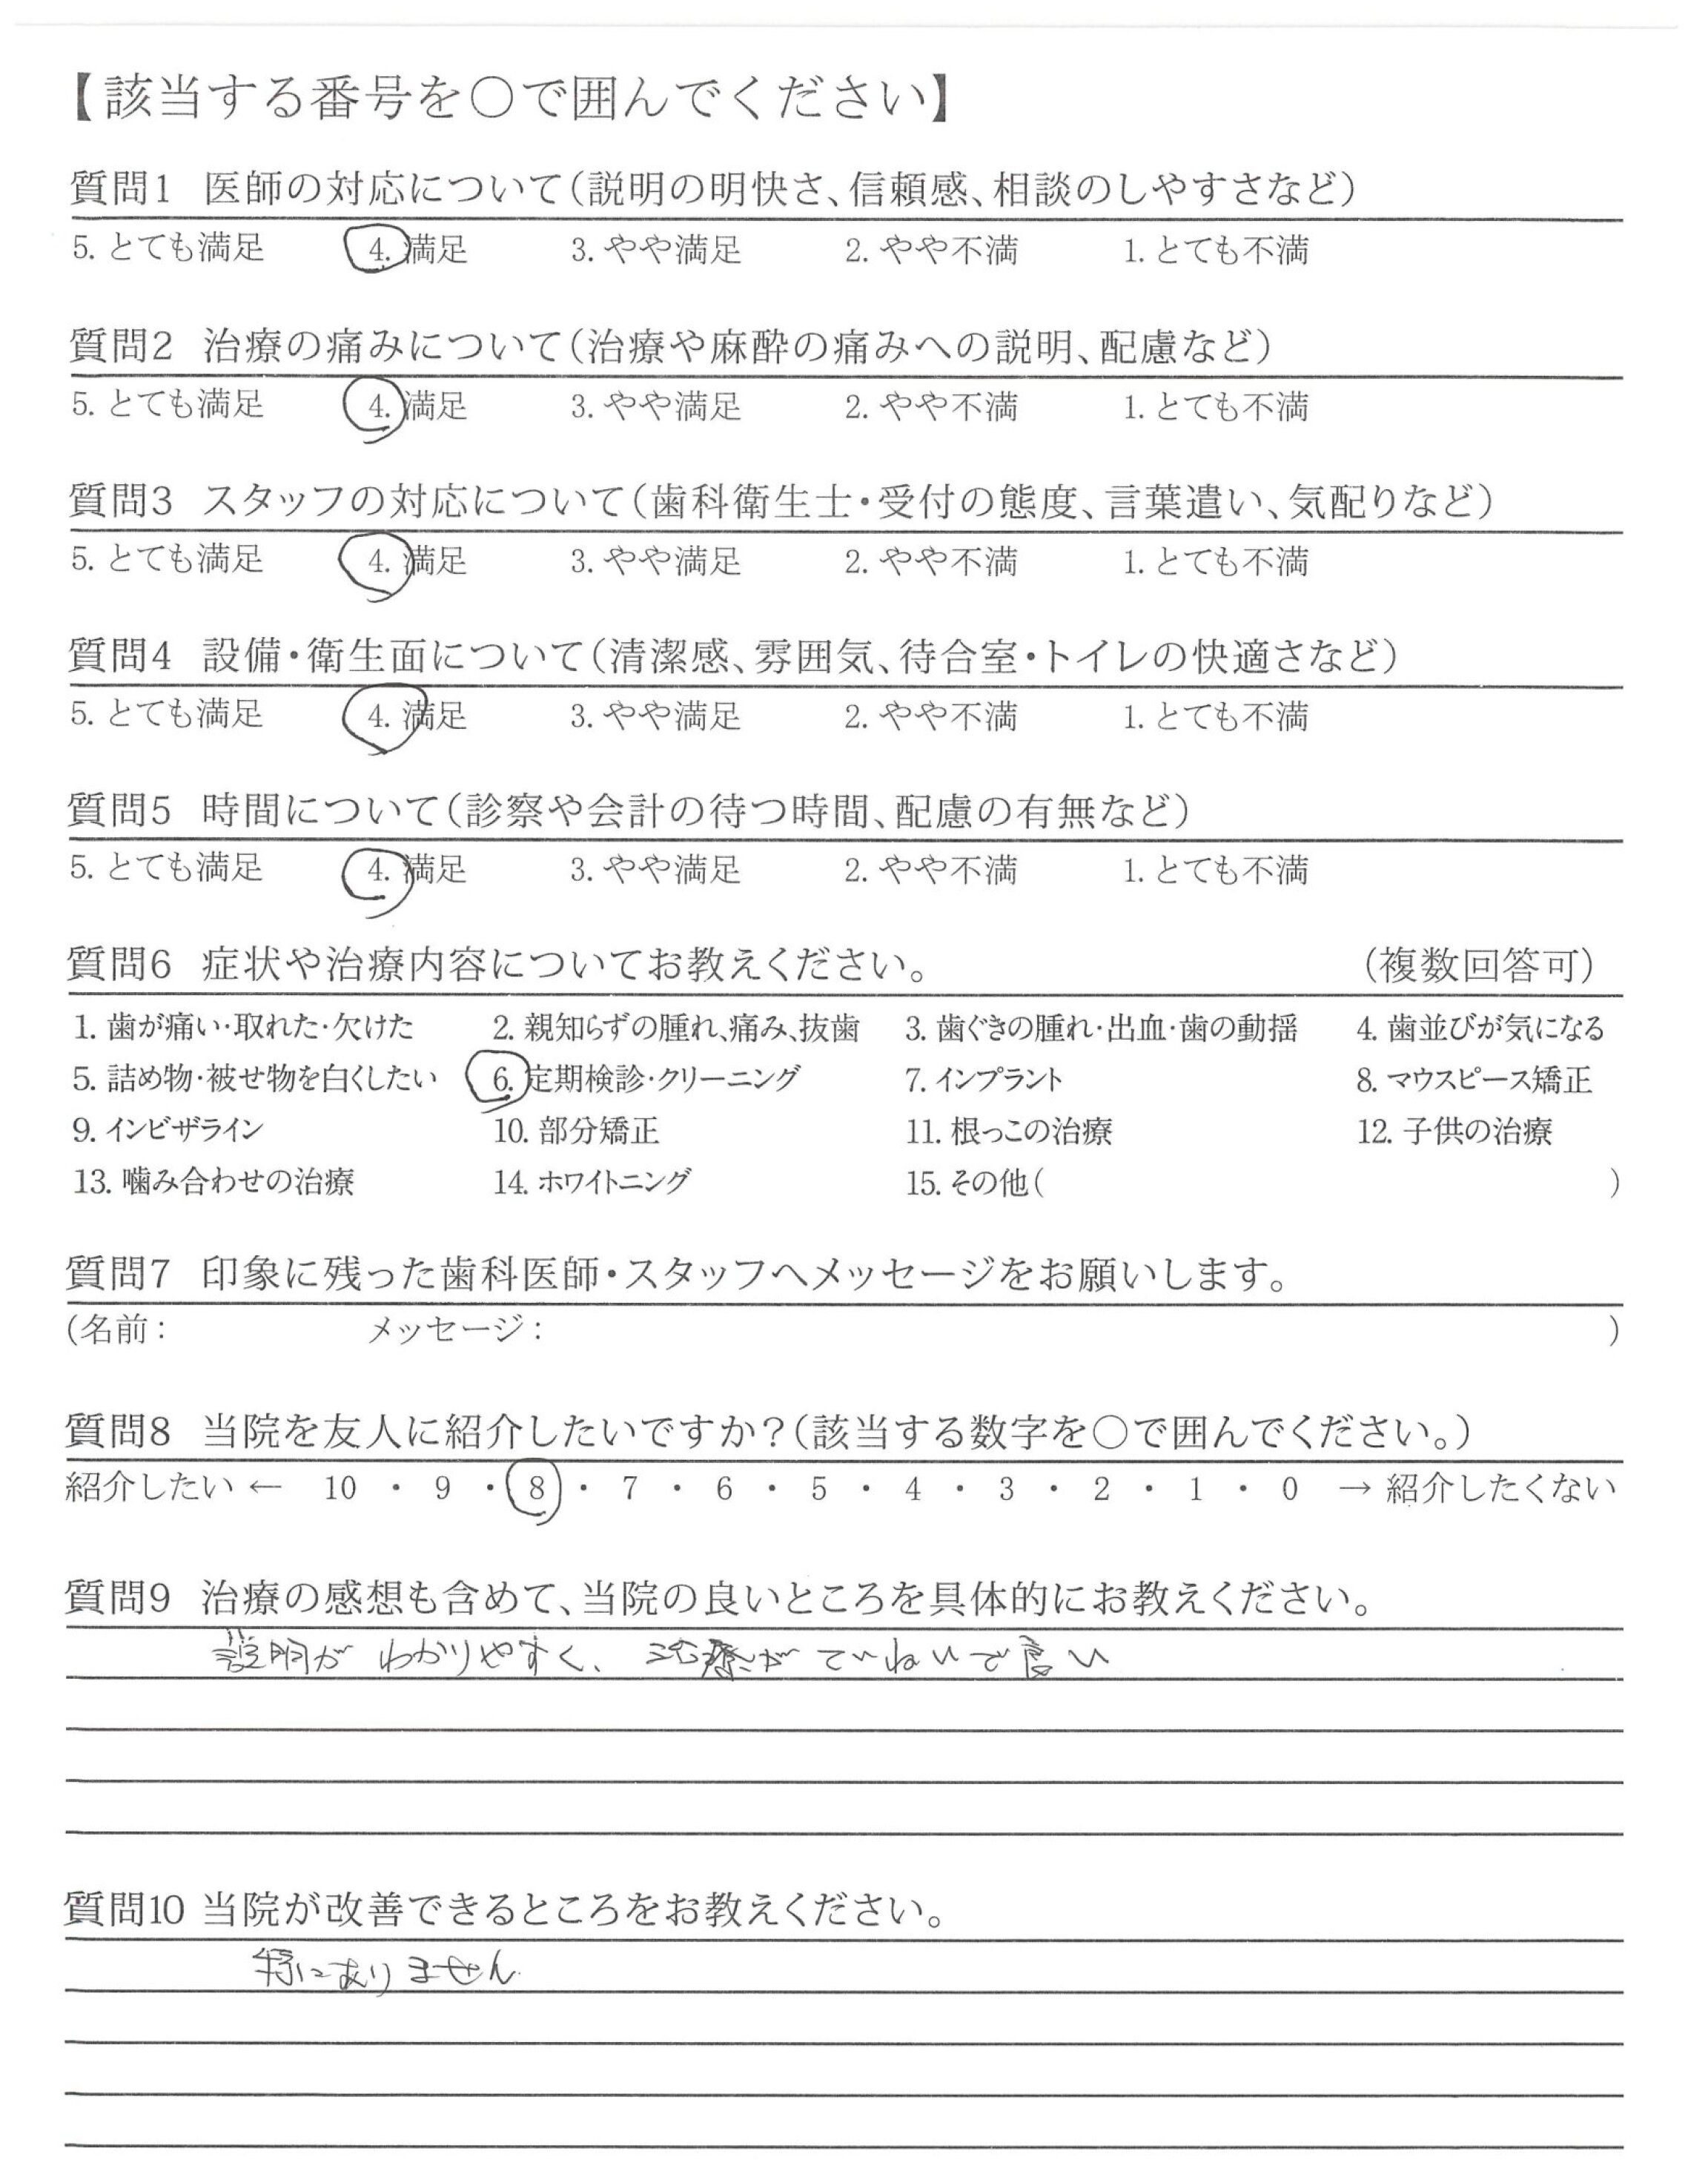 【該当する番号を○で囲んでください】
質問1 医師の対応について(説明の明快さ、信頼感、相談のしやすさなど)
5. とても満足 4. 満足 3. やや満足 2. やや不満 1. とても不満
質問2 治療の痛みについて(治療や麻酔の痛みへの説明、配慮など)
5. とても満足 4. 満足 3. やや満足 2. やや不満 1. とても不満
質問3 スタッフの対応について(歯科衛生士・受付の態度、言葉遣い、気配りなど)
5. とても満足 4. 満足 3. やや満足 2. やや不満 1. とても不満
質問4 設備・衛生面について(清潔感、雰囲気、待合室・トイレの快適さなど)
5. とても満足 4. 満足 3. やや満足 2. やや不満 1. とても不満
質問5 時間について(診察や会計の待つ時間、配慮の有無など)
5. とても満足 4. 満足 3. やや満足 2. やや不満 1. とても不満
質問6 症状や治療内容についてお教えください。 (複数回答可)
1. 歯が痛い・取れた・欠けた 2. 親知らずの腫れ、痛み、抜歯 3. 歯ぐきの腫れ・出血・歯の動揺 4. 歯並びが気になる
5. 詰め物・被せ物を白くしたい 6. 定期検診・クリーニング 7. インプラント 8. マウスピース矯正
9. インビザライン 10. 部分矯正 11. 根っこの治療 12. 子供の治療
13. 噛み合わせの治療 14. ホワイトニング 15. その他( )
質問7 印象に残った歯科医師・スタッフへメッセージをお願いします。
(名前: メッセージ: )
質問8 当院を友人に紹介したいですか?(該当する数字を○で囲んでください。)
紹介したい ← 10 ・ 9 ・ 8 ・ 7 ・ 6 ・ 5 ・ 4 ・ 3 ・ 2 ・ 1 ・ 0 → 紹介したくない
質問9 治療の感想も含めて、当院の良いところを具体的にお教えください。
説明が わかりやすく、治療が ていねいで良い
質問10 当院が改善できるところをお教えください。
特にありません